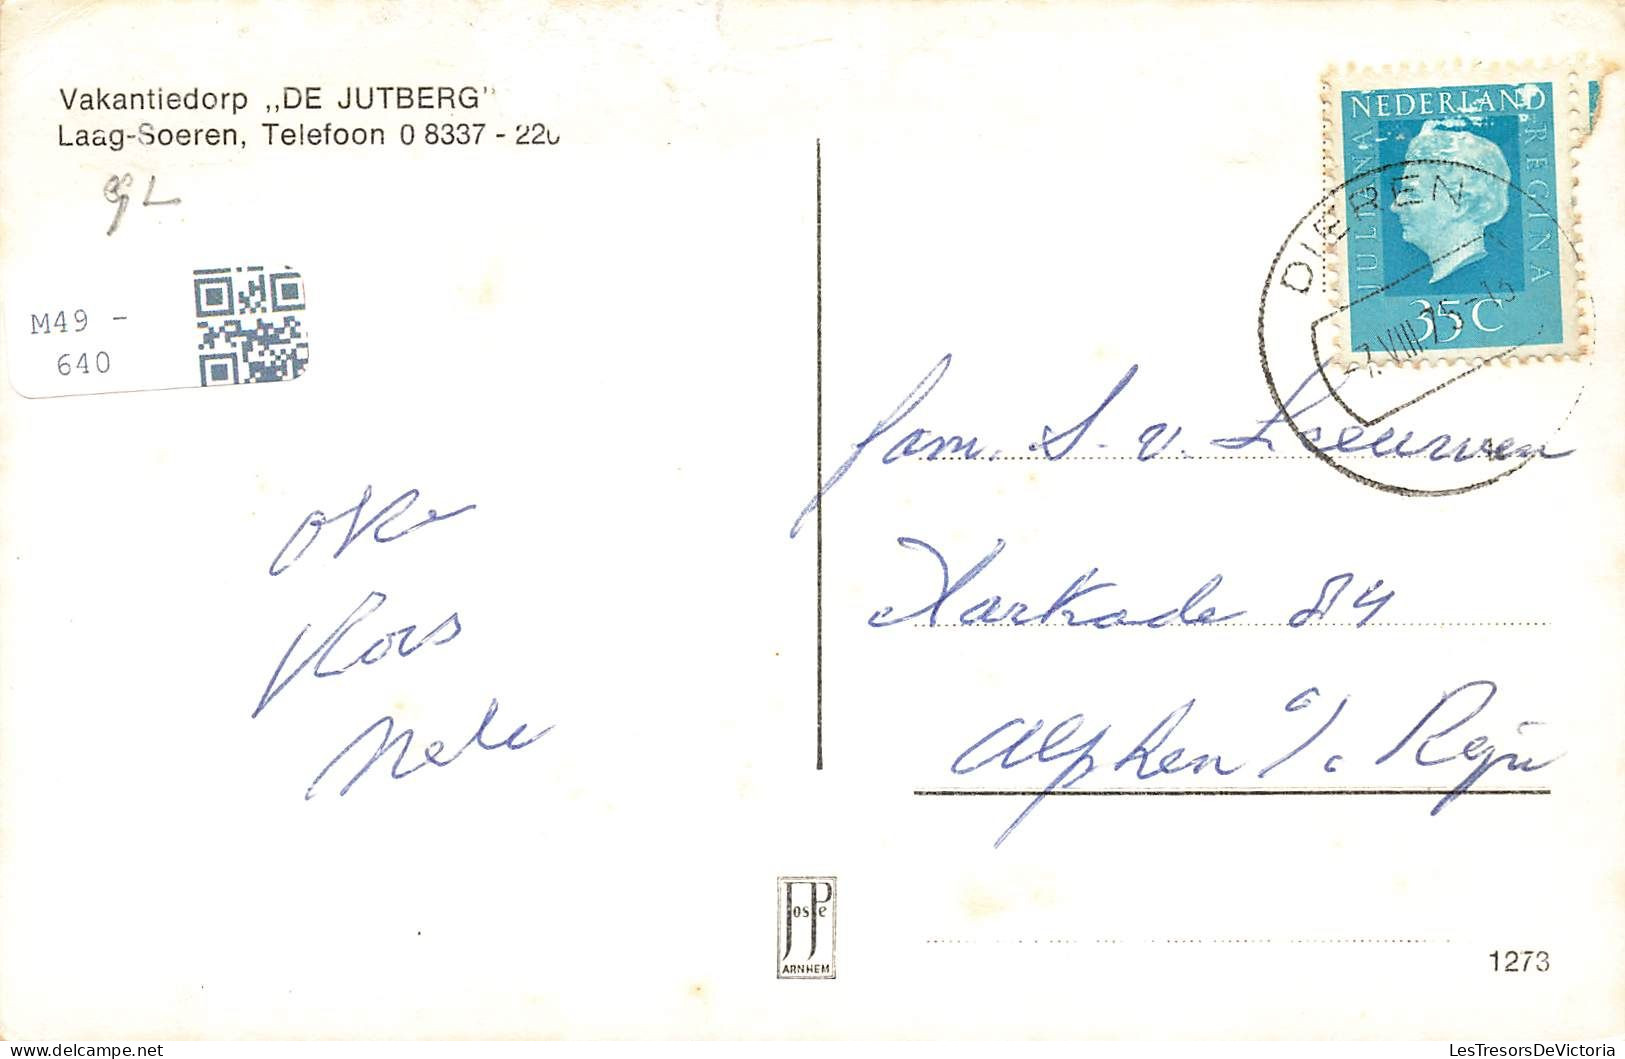 Vakantiedorp „DE JUTBERG"
Laag-Soeren, Telefoon 0 8337 - 220
M49 -
640
NEDERLAND
JULIANA
REGINA
35 C
DIEREN
-7.VIII.75-13
fam. S. v. Leeuwen
84
Alphen a/. Rijn
Kors
Nele
JosPe
ARNHEM
1273
LesTresorsDeVictoria